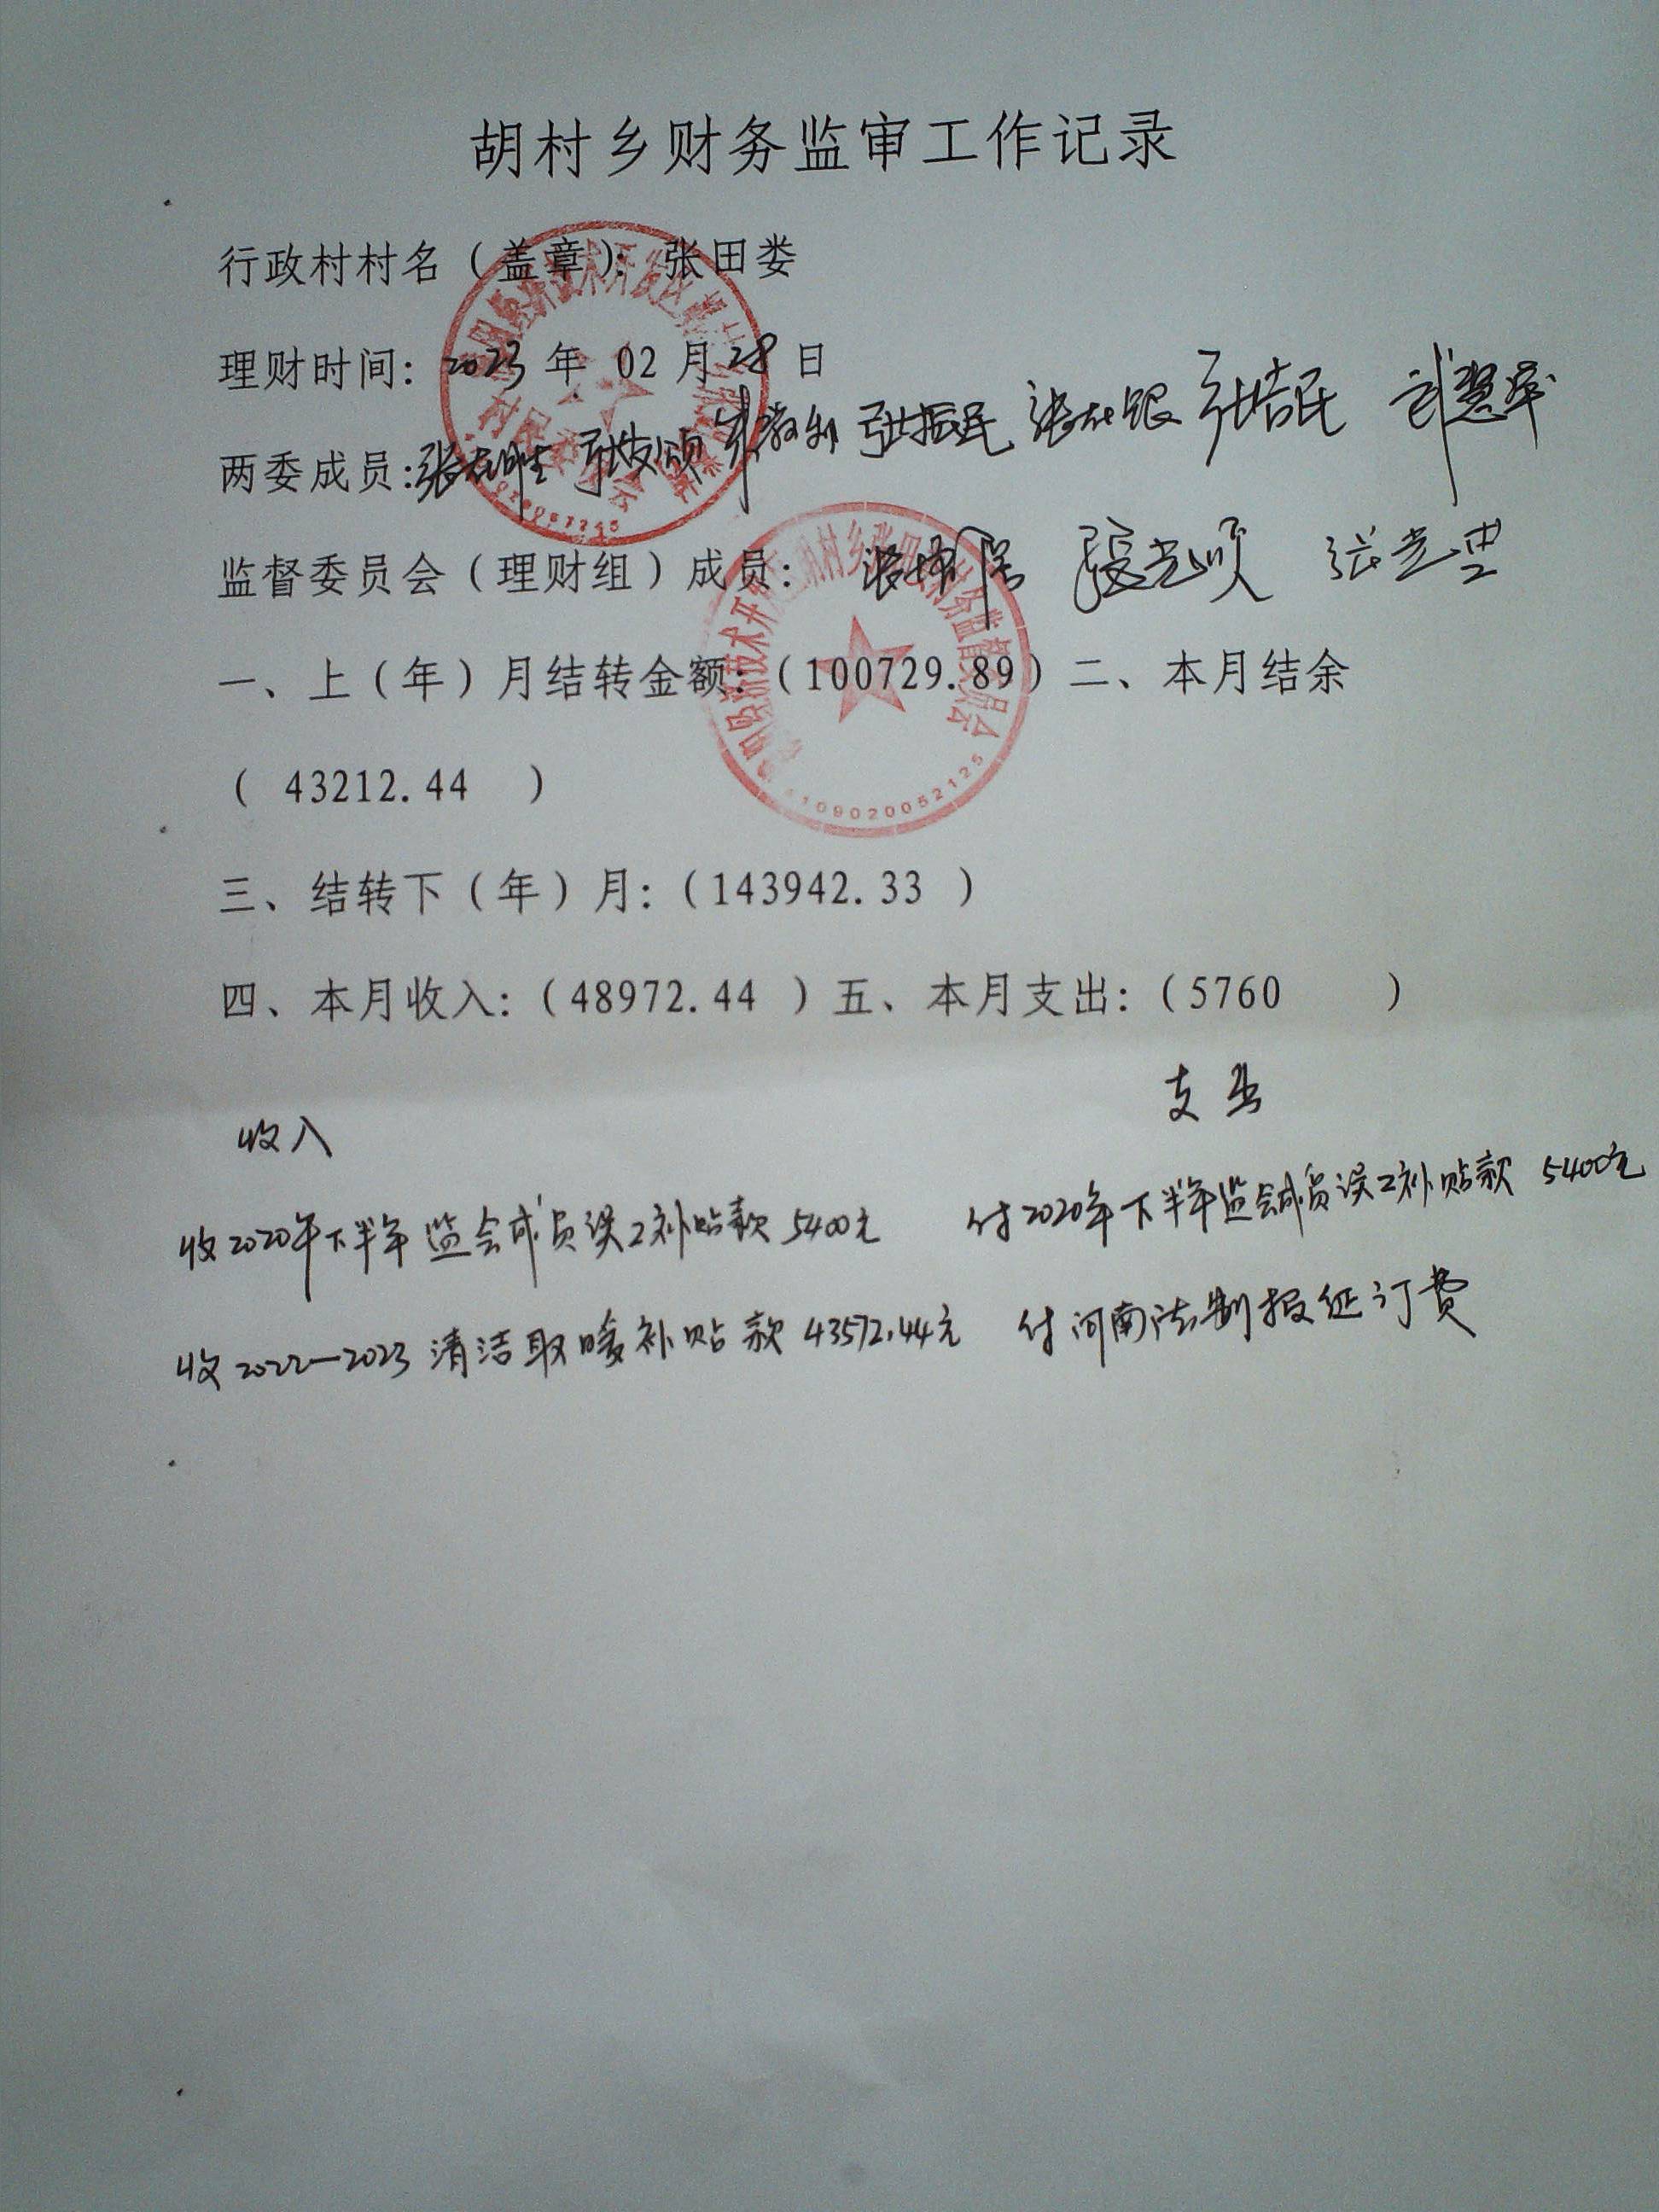 胡村乡财务监审工作记录
行政村村名（盖章）：张田娄
理财时间：2023年 02月28日
两委成员： 张振民
监督委员会（理财组）成员： 张光顺
一、上（年）月结转金额：（100729.89）二、本月结余
（ 43212.44 ）
三、结转下（年）月：（143942.33 ）
四、本月收入：（48972.44 ）五、本月支出：（5760 ）
收入 支出
收2020年下半年监会成员误工补贴款5400元 付2020年下半年监会成员误工补贴款 5400元
收2022—2023清洁取暖补贴款43572.44元 付河南法制报征订费
4109020052125